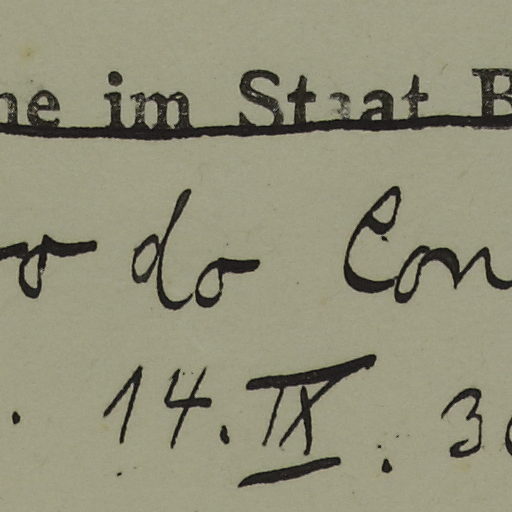 ne im Staat B
ro do Con
. 14. IX. 30